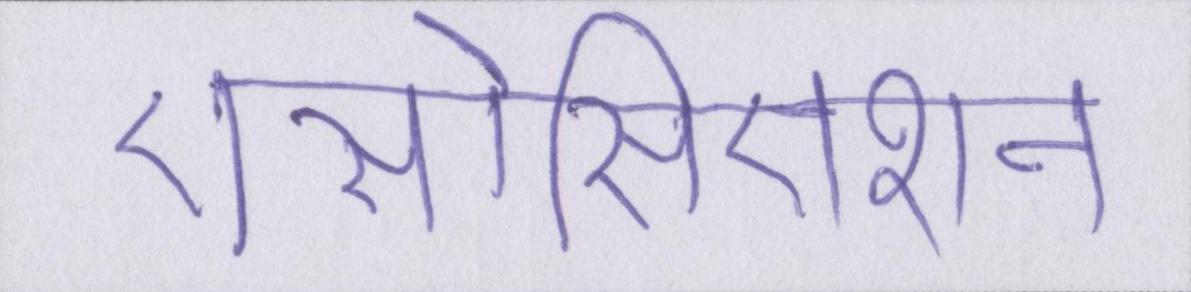 एसोसिएशन